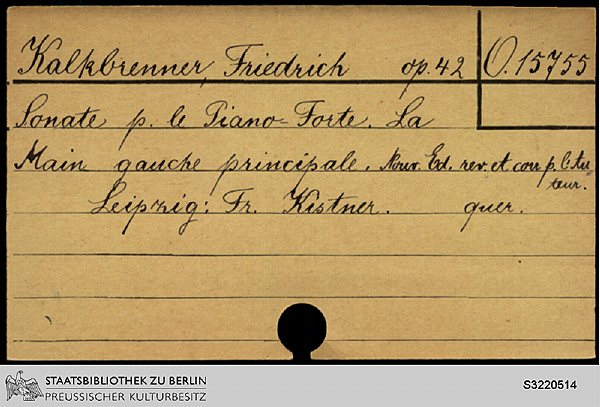 Kalkbrenner, Friedrich op. 42 O. 15755
Sonate p. le Piano-Forte. La
Main gauche principale. Nouv. Ed. rev. et corr. p. l'Au-
teur.
Leipzig: Fr. Kistner. quer.
STAATSBIBLIOTHEK ZU BERLIN
PREUSSISCHER KULTURBESITZ
S3220514